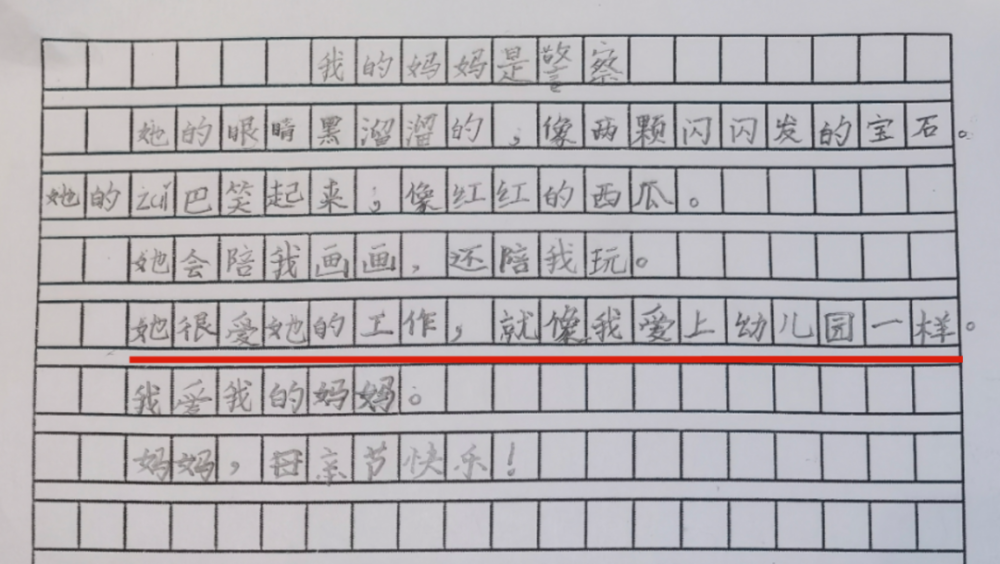 我的妈妈是警察
她的眼睛黑溜溜的，像两颗闪闪发的宝石。
她的zuǐ巴笑起来，像红红的西瓜。
她会陪我画画，还陪我玩。
她很爱她的工作，就像我爱上幼儿园一样。
我爱我的妈妈。
妈妈，母亲节快乐！